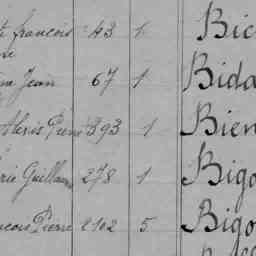 françois 43 1 Bic
Jean 67 1 Bida
Alexis Pierre 393 1 Bien
Guillaume 278 1 Bigo
Pierre 2102 5 Bigo